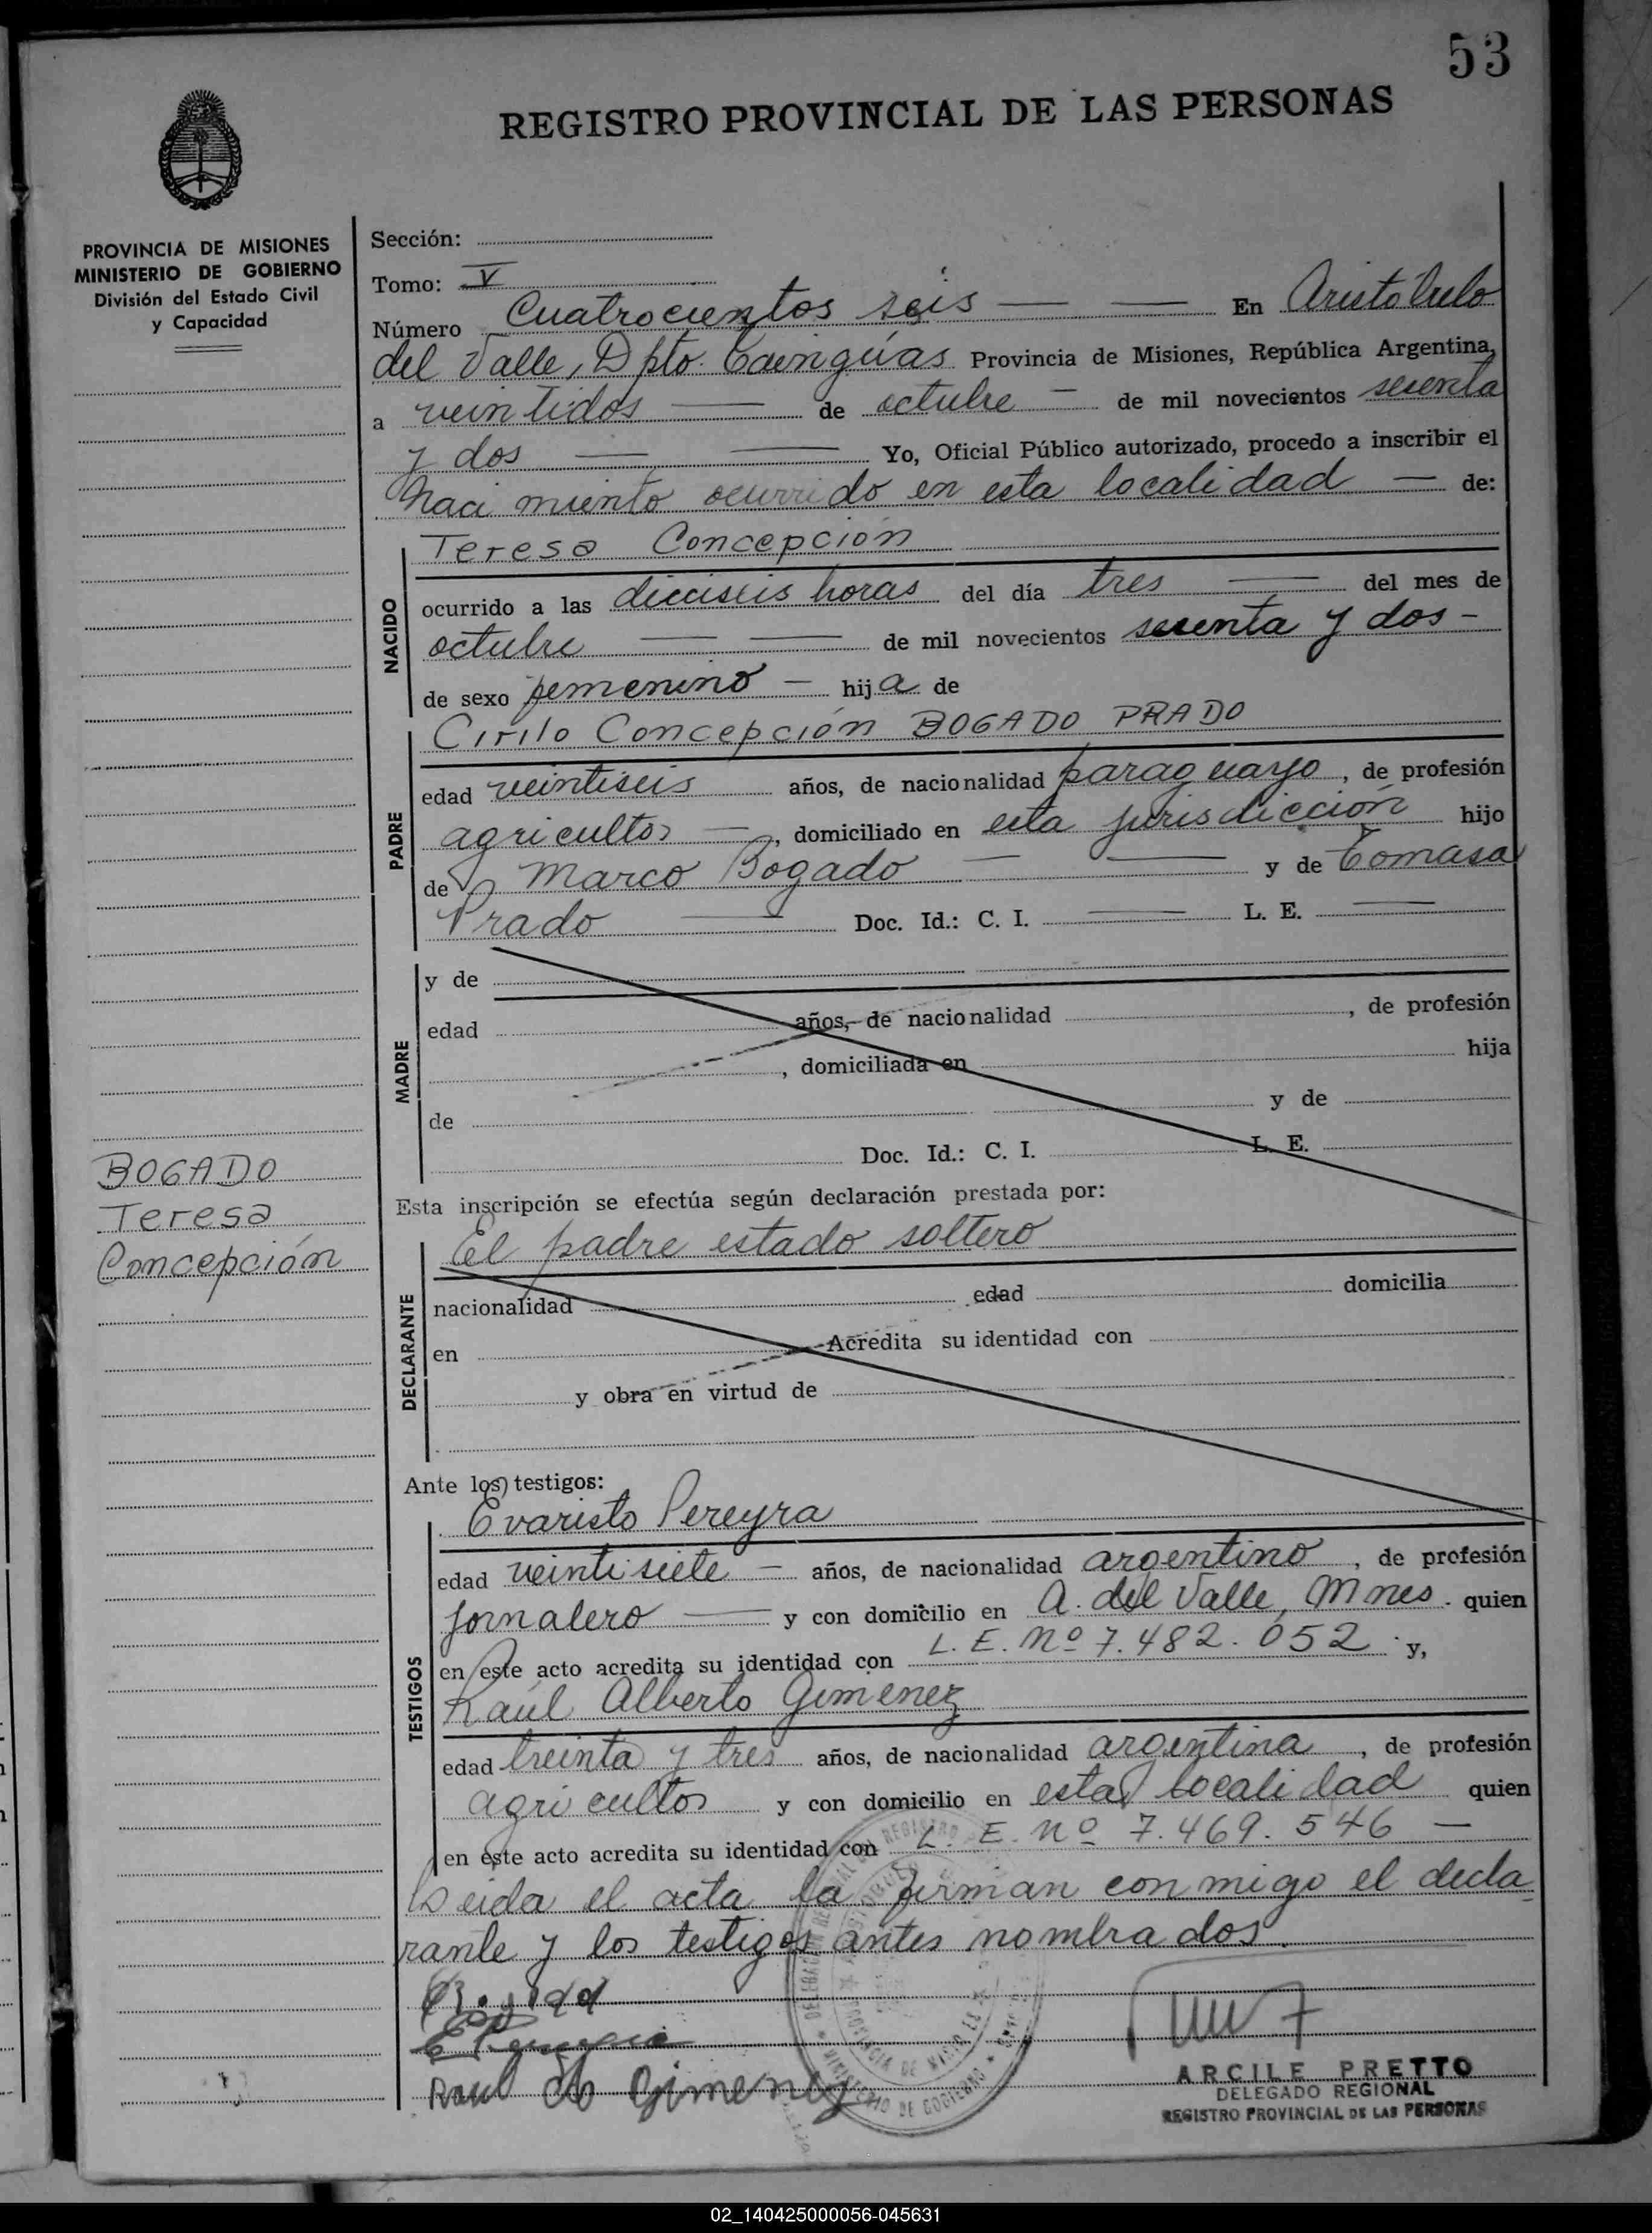 53
REGISTRO PROVINCIAL DE LAS PERSONAS
PROVINCIA DE MISIONES
MINISTERIO DE GOBIERNO
División del Estado Civil
y Capacidad
Sección:
Tomo: V
Número Cuatrocientos seis — — En Aristóbulo
del Valle, Dpto. Cainguas Provincia de Misiones, República Argentina,
a veintidos — de octubre — de mil novecientos setenta
y dos — — Yo, Oficial Público autorizado, procedo a inscribir el
naci miento ocurrido en esta localidad — de:
Teresa Concepción
NACIDO
ocurrido a las dieciseis horas del día tres — del mes de
octubre — — de mil novecientos setenta y dos -
de sexo femenino — hija de
Cirilo Concepción BOGADO PRADO
PADRE
edad veintiseis años, de nacionalidad paraguayo, de profesión
agricultor —, domiciliado en esta jurisdicción hijo
de Marco Bogado — — y de Tomasa
Prado — Doc. Id.: C. I. — L. E. —
MADRE
y de
edad años, de nacionalidad , de profesión
, domiciliada en hija
de y de
Doc. Id.: C. I. L. E.
BOGADO
Teresa
Concepción
Esta inscripción se efectúa según declaración prestada por:
El padre estado soltero
DECLARANTE
nacionalidad edad domicilia
en Acredita su identidad con
y obra en virtud de
Ante los testigos:
Evaristo Pereyra
TESTIGOS
edad veintisiete — años, de nacionalidad argentino, de profesión
jornalero — y con domicilio en A. del Valle, Mnes. quien
en este acto acredita su identidad con L. E. Nº 7.482.052 y,
Raúl Alberto Gimenez
edad treinta y tres años, de nacionalidad argentina, de profesión
agricultor y con domicilio en esta localidad quien
en este acto acredita su identidad con L. E. Nº 7.469.546 —
Leida el acta la firman conmigo el decla
rante y los testigos antes nombrados.
Raul Gimenez
ARCILE PRETTO
DELEGADO REGIONAL
REGISTRO PROVINCIAL DE LAS PERSONAS
MINISTERIO DE GOBIERNO
02_140425000056-045631